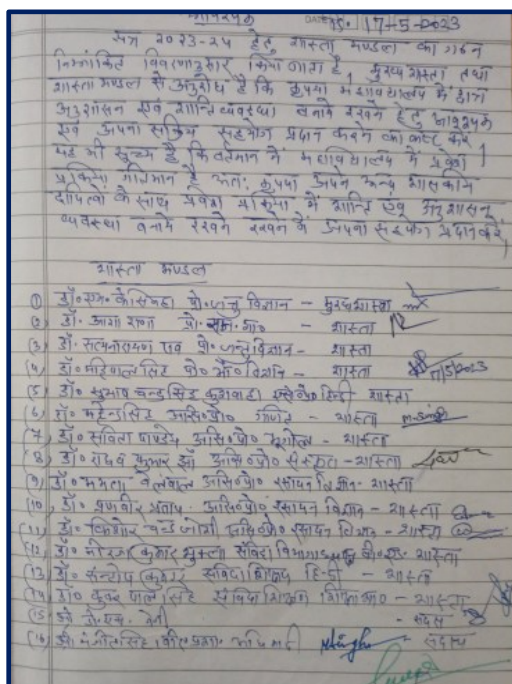 आवश्यक
दि. 17-5-2023
सत्र 2023-24 हेतु शास्ता मण्डल का गठन
निम्नांकित विवरणानुसार किया जाता है, मुख्य शास्ता तथा
शास्ता मण्डल से अनुरोध है कि कृपया महाविद्यालय में
अनुशासन एवं शान्ति व्यवस्था बनाये रखने हेतु आवश्यक
एवं अपना सक्रिय सहयोग प्रदान करने का कष्ट करें।
यह भी सूच्य है कि वर्तमान में महाविद्यालय में प्रवेश
प्रक्रिया गतिमान है अतः कृपया अपने अन्य शासकीय
दायित्वों के साथ प्रवेश प्रक्रिया में शान्ति एवं अनुशासन
व्यवस्था बनाये रखने रखने में अपना सहयोग प्रदान करें,
शास्ता मण्डल
(1) डॉ० एम० के० प्रो० जन्तु विज्ञान - मुख्य शास्ता
(2) डॉ० आशा राणा प्रो० - शास्ता
(3) डॉ० सत्यनारायण राव प्रो० जन्तु विज्ञान - शास्ता
(4) डॉ० महिपाल सिंह प्रो० भौ० विज्ञान - शास्ता 17/5/2023
(5) डॉ० सुभाष चन्द्र सिंह कुशवाहा एसो० प्रो० हिन्दी शास्ता
(6) डॉ० महेन्द्र सिंह असि० प्रो० गणित - शास्ता
(7) डॉ० सविता पाण्डेय असि० प्रो० भूगोल - शास्ता
(8) डॉ० राघव कुमार झाँ असि० प्रो० संस्कृत - शास्ता
(9) डॉ० ममता असि० प्रो० रसायन विज्ञान - शास्ता
(10) डॉ० प्रताप असि० प्रो० रसायन विज्ञान - शास्ता
(11) डॉ० किशोर चन्द्र जोशी असि० प्रो० रसायन विज्ञान - शास्ता
(12) डॉ० नीरज कुमार शुक्ला संविदा बी० एड० शास्ता
(13) डॉ० सन्तोष कुमार संविदा शिक्षक हिन्दी - शास्ता
(14) डॉ० कुंवर पाल सिंह संविदा शिक्षक - शास्ता
(15) श्री - सदस्य
(16) श्री - सदस्य